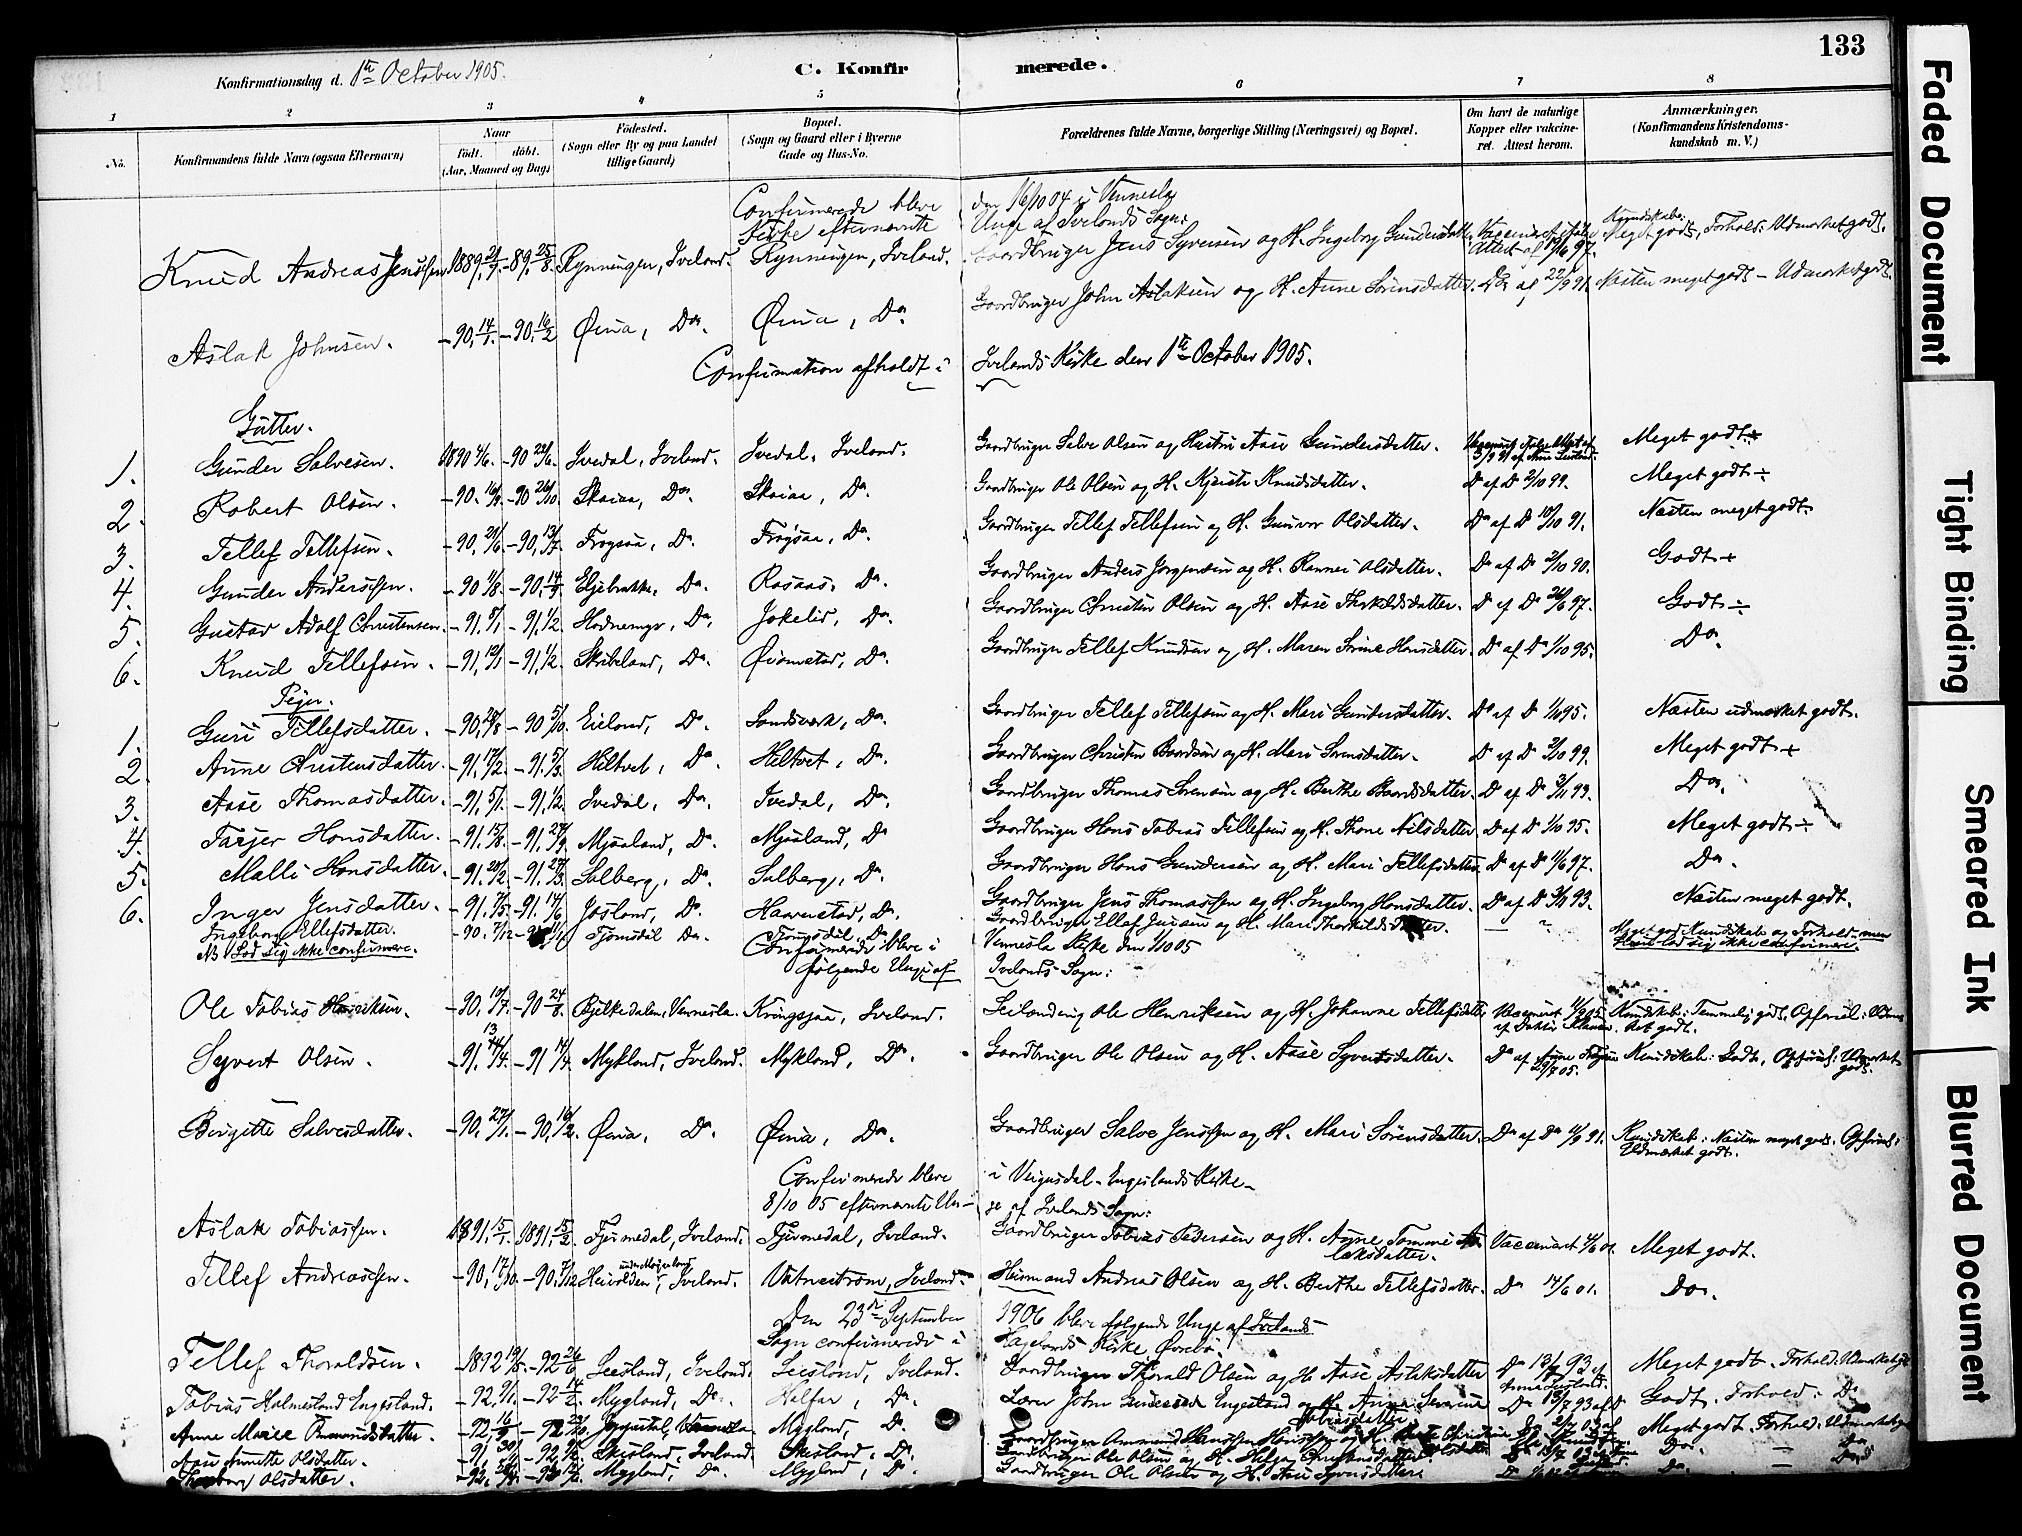 133
Konfirmationsdag d. 1ste October 1905.
C. Konfirmerede.
1 2 3 4 5 6 7 8
No. Konfirmandens fulde Navn (ogsaa Efternavn) Naar født. døbt. (Aar, Maaned og Dag) Fødested. (Sogn eller By og paa Landet tillige Gaard) Bopæl. (Sogn og Gaard eller i Byerne Gade og Hus-No. Forældrenes fulde Navne, borgerlige Stilling (Næringsvei) og Bopæl. Om havt de naturlige Kopper eller vakcineret. Attest herom. Anmærkninger. (Konfirmandens Kristendomskundskab m. V.)
Confirmerede bleve den 16/10 04 i Vennesla
Kirke efternævnte Unge af Ivelands Sogn:
Knud Andreas Jenssen 1889 21/7 -89, 25/8. Rynningen, Iveland. Rynningen, Iveland. Gaardbruger Jens Syvertsen og H. Ingeborg Gundersdatter. Meget godt, Forhold: Udmærket godt.
Aslak Johnsen. -90, 14/1. -90, 16/2 Øina, Do. Øina, Do. Gaardbruger John Aslaksen og H. Anne Sørensdatter. Do af 22/9 91. Næsten meget godt - Udmærket godt.
Confirmation afholdt i Ivelands Kirke den 1ste October 1905.
Gutter.
1. Gunder Salvesen. 1890 4/6. -90 22/6. Ivedal, Iveland. Ivedal, Iveland. Gaardbruger Salve Olsen og Hustru Aase Gundersdatter. Meget godt +
2. Robert Olsen. -90. 16/9. -90 26/10 Skaiaa, Do. Skaiaa, Do. Gaardbruger Ole Olsen og H. Kjersti Knudsdatter. Do af Do 2/10 99. Meget godt ÷
3. Tellef Tellefsen. -90, 21/6 -90, 13/7. Frøysaa, Do. Frøysaa, Do. Gaardbruger Tellef Tellefsen og H. Gunvor Olsdatter. Do af Do 10/10 91. Næsten meget godt
4. Gunder Anderssen. -90 11/8. -90. 14/9. Do. Rosaas, Do. Gaardbruger Anders Jørgensen og H. Olsdatter. Do af Do 2/10 90. Godt +
5. Gustav Adolf Christensen. -91, 8/1 -91, 1/2. Do. Jokelid, Do. Gaardbruger Christen Olsen og H. Aase Thorkildsdatter. Do af Do 97. Godt ÷
6. Knud Tellefsen. -91, 12/1 -91, 1/2. Skribeland, Do. Do. Gaardbruger Tellef Knudsen og H. Maren Sirine Hansdatter. Do af Do 1/10 95. Do.
Piger.
1. Guri Tellefsdatter. -90, 28/8 -90 5/10. Eieland, Do. Sandsværk, Do. Gaardbruger Tellef Tellefsen og H. Mari Gundersdatter. Do af Do 95. Næsten udmærket godt.
2. Anne Christensdatter. -91, 17/2. -91. 5/3. Heltvet, Do. Heltvet, Do. Gaardbruger Christen Baardsen og H. Mari Sørensdatter. Do af Do 2/10 99. Meget godt +
3. Aase Thomasdatter. -91, 5/1. -91, 1/2. Ivedal, Do. Ivedal, Do. Gaardbruger Thomas Sørensen og H. Berthe Baardsdatter. Do af Do 3/11 99. Do.
4. Tarjer Hansdatter. -91, 15/8. -91, 27/9. Mjaaland, Do. Mjaaland, Do Gaardbruger Hans Tobias Tellefsen og H. Thone Nilsdatter. Do af Do 1/10 95. Meget godt ÷
5. Malli Hansdatter. -91, 20/2. -91. 29/3. Salberg, Do. Salberg, Do. Gaardbruger Hans Gundersen og H. Mari Tellefsdatter Do af Do 97. Do.
6. Inger Jensdatter. -91, 7/5. -91. 17/6. Do. Haavestad, Do. Gaardbruger Jens Thomassen og H. Ingeborg Hansdatter. Do af Do 93. Næsten meget godt.
Ingeborg Ellefsdatter. -90. 7/12 Tjomsdal Do. Tjomsdal, Do Gaardbruger Ellef Jensen og H. Mari Thorkildsdatter. Meget god Kundskab og Forhold - men
NB Lod sig ikke confirmere. lod sig ikke confirmere.
Confirmerede bleve i Vennesla Kirke den 1/10 05
følgende Unge af Ivelands Sogn:
Ole Tobias Henriksen. -90, 10/7. -90 24/8. Bjelkedalen, Vennesla. Kringsjaa, Iveland. Leilænding Ole Henriksen og H. Johanne Tellefsdatter Kundskab: Temmelig godt.
Syvert Olsen. -91, -91 Mykland, Iveland. Mykland, Do. Gaardbruger Ole Olsen og H. Aase Syvertsdatter. Do af Anne 05. Kundskab: Godt, Opførsel: Udmærket godt.
Birgitte Salvesdatter. -90, 27/1. -90, 16/2. Øina, Do. Øina, Do. Gaardbruger Salve Jenssen og H. Mari Sørensdatter. Do af Do 91. Kundskab: Næsten meget godt. Opførsel: Udmærket godt.
Confirmerede bleve i Veigusdal-Engeslands Kirke
8/10 05 efternævnte Unge af Ivelands Sogn:
Aslak Tobiassen. 1891, 15/1. 1891, 15/2. Tjusmedal, Iveland. Tjusmedal, Iveland. Gaardbruger Tobias Pedersen og H. Anne Tomine Aslaksdatter. Vaccineret Meget godt.
Tellef Andreassen. -90, 17/10. -90, 7/12 Iveland. Vatnestrøm, Iveland. Huusmand Andreas Olsen og H. Berthe Tellefsdatter. Do 14/6 01. Do.
Den 23de September 1906 bleve følgende Unge af Ivelands
Sogn confirmerede i Hægelands Kirke, Øvrebø.
Tellef Thoraldsen. -1892 19/5 -92 26/6 Iveland. Iveland. Gaardbruger Thorald Olsen og H. Aase Aslaksdatter Do 13/7 93 af Meget godt. Forhold: Udmærket godt
Tobias Holmesland Engesland. -92, 9/1. -92 14/2. Mygland, Do. Do. Lærer John Gundersen Engesland og H. Anne Severine Tobiasdatter. Do 13/7 93 af Do Godt. Forhold: Do
Anne Marie Ommundsdatter. -92 16/9 Mygland, Do. Gaardbruger Ommund Meget godt. Forhold: Udmærket godt
Aase Anette Olsdatter. Iveland. Do. Gaardbruger Ole Olsen og H. Helga Christensdatter. Do. — Do
Olsdatter. -92. Mygland, Do. Mygland, Do. Gaardbruger Ole Olsen og H. Aase Syvertsdatter. Do. — Do
Faded Document
Tight Binding
Smeared Ink
Blurred Document